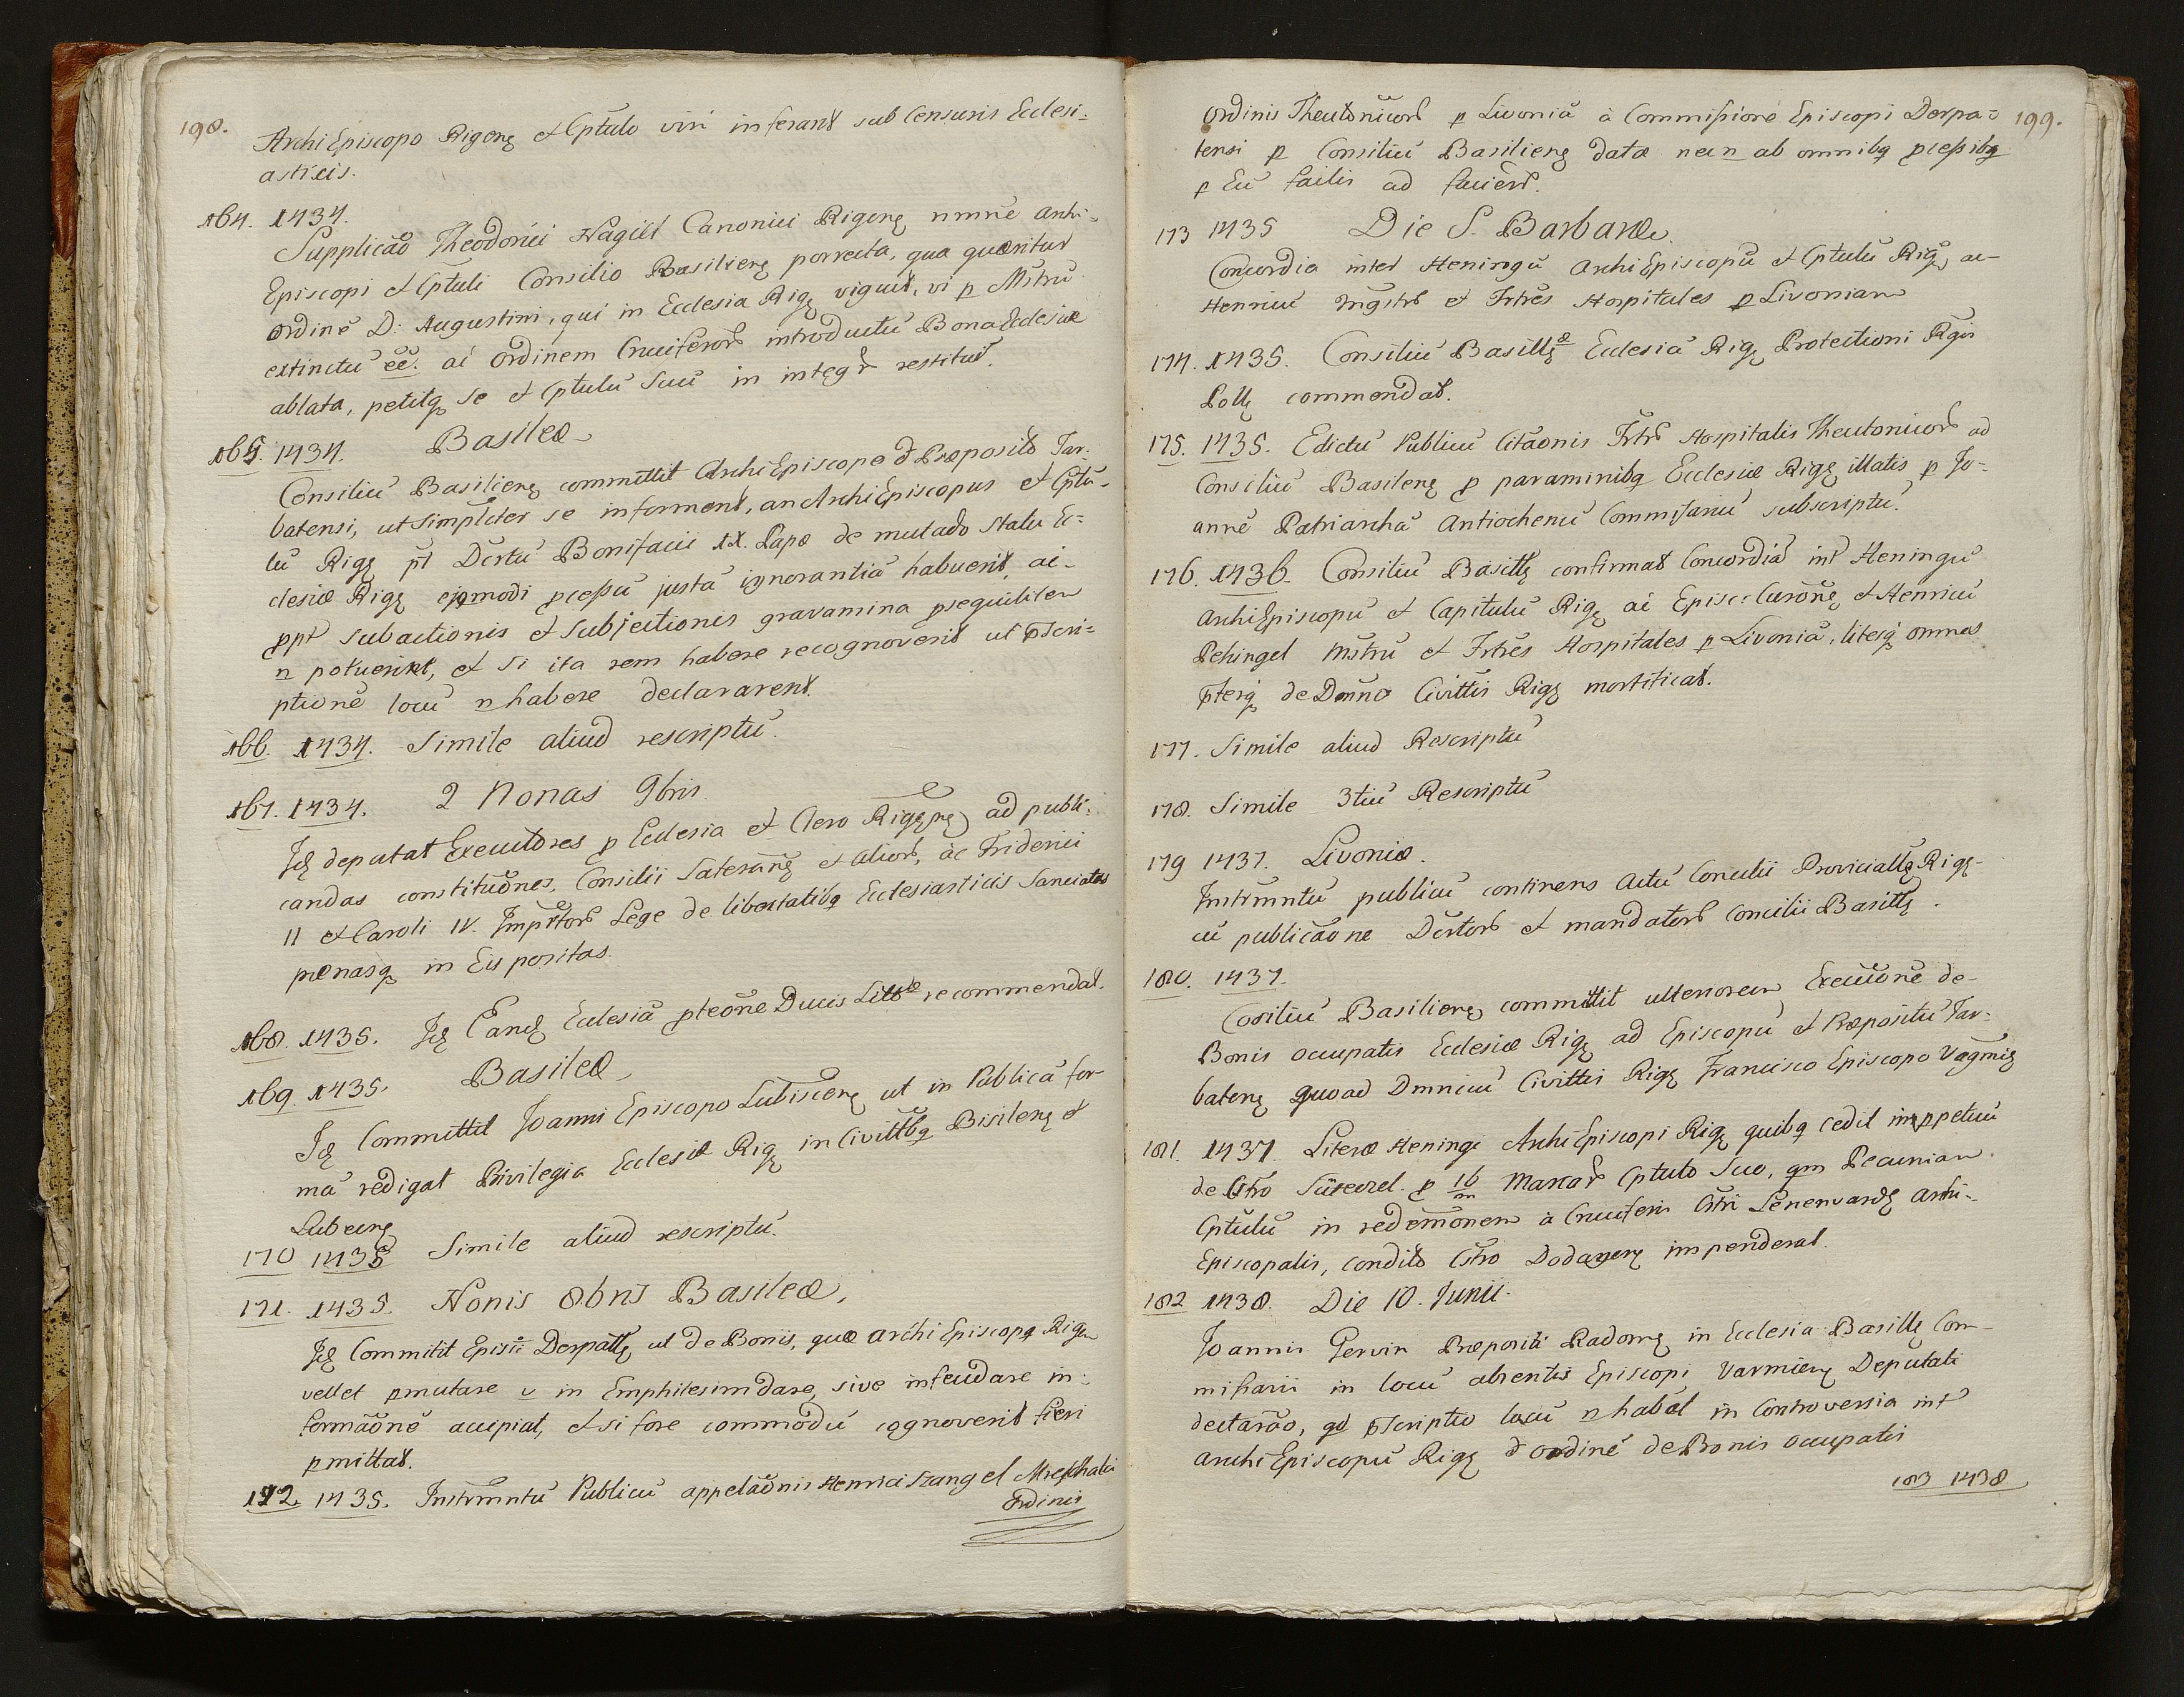 198.
Archi Episcopo Rigenę et Cptulo viri inferant sub Censuris Ecclesi-
asticis.
164. 1434.
Supplicaō Theodorici Nagiel Canonici Rigenę nmnē Archi-
Episcopi et Cptuli Consilio Basilienę porrecta, qua quæritur
Ordinē D: Augustini, qui in Ecclesia Rigę viguit, vi p Mstrū
extinctū ēē. ac Ordinem Cruciferorꝝ introductū Bona Ecclesiæ
ablata, petitq se et Cptulū Suū in integrꝝ restitui.
165. 1434. Basileæ
Consiliū Basilienę committit Archi Episcopo & Præposito Tar-
batensi, ut Simplcter se informent, an Archi Episcopus et Cptu-
lū Rigę pt Dcrtū Bonifacii IX. Papæ de mutado Statu Ec-
clesiæ Rigę ejqmodi pcessū justā ignorantiā habuerit, ac
ppt subactionis et Subjectionis gravamina psequiliter
n potuerint, et Si ita rem habere recognoverit ut pscri-
ptionē locū n habere declararent.
166. 1434. Simile aliud rescriptū.
167. 1434. 2 Nonas 9bris.
Idę deputat Executores p Ecclesia et Clero Rigenę ad publi-
candas constitutōnes, Consilii Lateranę et alioꝝ, ac Friderici
II et Caroli IV. Imprtorꝝ Lege de libertatibq Ecclesiasticis Sancitas
pœnasq in Eis positas.
168. 1435. Idę Eandę Ecclesiā pteōne Ducis Litt recommendat.
169 1435. Basileæ
Idę Committit Joanni Episcopo Lubiscenę ut in Publicā for-
mā redigat Privilegia Ecclesiæ Rigę in Civittbq Bisilenę et
Lubecenę
170 1435 Simile aliud rescriptū.
171. 1435. Nonis 8bris Basileæ,
Idę Committit Episc Derpattę ut de Bonis, quæ Archi Episcopq Rigen
vellet pmutare v in Emphitesim dare, sive infeudare in-
formāonē accipiat, et si fore commodū cognoverit fieri
pmittat.
172. 1435. Instrmntū Publicū appelāōnis Henrici Szangel Mreschalci
Ordinis
199.
Ordinis Theutonicorꝝ p Livoniā à Commissione Episcopi Derpa-
tensi p Consiliū Basilienę data nec n ab omnibq pcessibq
p Eū factis ad faciendꝝ.
173 1435 Die S. Barbaræ.
Concordia inter Heningū Archi Episcopū et Cptulū Rigę, ac
Henricū Mgistrꝝ et Frtrēs Hospitales p Livoniam
174. 1435. Consiliū Basillę Ecclesiā Rigę Protectioni Rgis
Pollę commendat.
175. 1435. Edictū Publicū Citāonis Frtrꝝ Hospitalis Theutonicorꝝ ad
Consiliū Basilenę p pavaminibq Ecclesiæ Rigę illatis p Jo-
annē Patriarchā Antiochenū Commisariū subscriptū.
176. 1436. Consiliū Basillę confirmat Concordiā int Heningū
Archi Episcopū et Capitulū Rigę ac Episc: Curonę, et Henricū
Pehingel Mstrū et Frtrēs Hospitales p Livoniā, literq omnes
pterq de Dmno Civittis Rigę mortificat.
177. Simile aliud Rescriptū
178. Simile 3tiū Rescriptū
179 1437. Livoniæ.
Instrmntū publicū continens Actū Concilii Provinciallę Rigę
cū publicāone Dcrtorꝝ et mandatorꝝ Concilii Basillę.
180. 1437.
Cosiliū Basilienę committit ulteriorem Executōnē de
Bonis occupatis Ecclesiæ Rigę ad Episcopū et Præpositū Tar-
batenę quoad Dmniū Civittis Rigę Francisco Episcopo Vagmię
181. 1437. Literæ Heningi Archi Episcopi Rigę quibq cedit in ppetuū
de Cstro Süxezel. p 16/m Marcarꝝ Cptulo Suo, qm Pecuniam
Cptulū in redemōnem à Cruciferis Cstri Lenenvardę Archi-
Episcopalis, condito Cstro Dodagenę impenderat.
182 1438. Die 10. Junii.
Joannis Gervin Præpositi Radomę in Ecclesia Basillę Com-
missarii in locū absentis Episcopi Varmienę Deputati
declarāo, qd pscriptio locū n habeat in Controversia int
Archi Episcopū Rigę & Ordinē de Bonis occupatis
183 1438